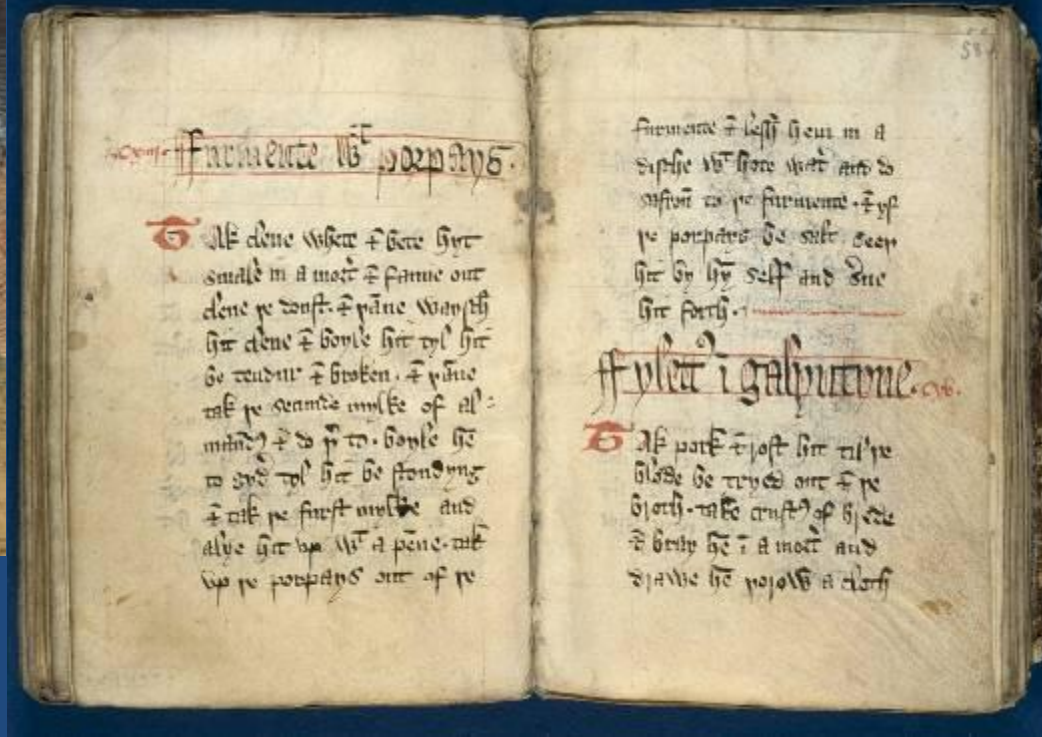 ffurmente wt porpays.
Tak clene whete & bete hyt
smale in a morter & fanne out
clene þe doust. & þanne waysch
hit clene & boyle hit tyl hit
be tendur & broken. & þanne
tak þe secunde mylke of al-
mandes & do þer to. boyle hem
to gyder tyl hit be stondyng
& tak þe furst mylke and
alye hit up wt a penne. tak
up þe porpays out of þe
58
furmente & lesch hem in a
dishe wt hote water and do
safron to þe furmente. & yf
þe porpays be salt seeþ
hit by hym self and serue
hit forth.
ffylettes i galyntyne. cxv.
Tak pork & rost hit til þe
blode be tryed out & þe
broth. take crustes of brede
& bray hem i a morter and
drawe hem þorow a cloth